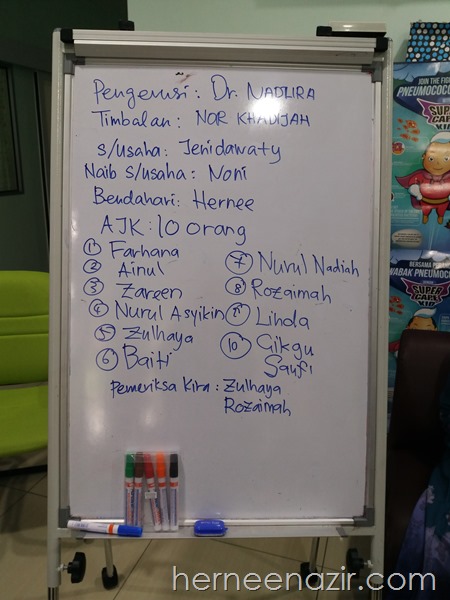 Pengerusi : Dr. NADLIRA
Timbalan : NOR KHADIJAH
S/Usaha : Jenidawaty
Naib S/Usaha : Noni
Bendahari : Hernee
AJK : 10 orang
① Farhana
② Ainul
③ Zareen
④ Nurul Asyikin
⑤ Zulhaya
⑥ Baiti
⑦ Nurul Nadiah
⑧ Rozaimah
⑨ Linda
⑩ Cikgu
Saufi
Pemeriksa Kira : Zulhaya
Rozaimah
JOIN THE FIGHT
PNEUMOCOCC
SUPER
CARE
KID
BERSAMA
WABAK PNEUMOCO
SUPER
CARE
KID
herneenazir.com